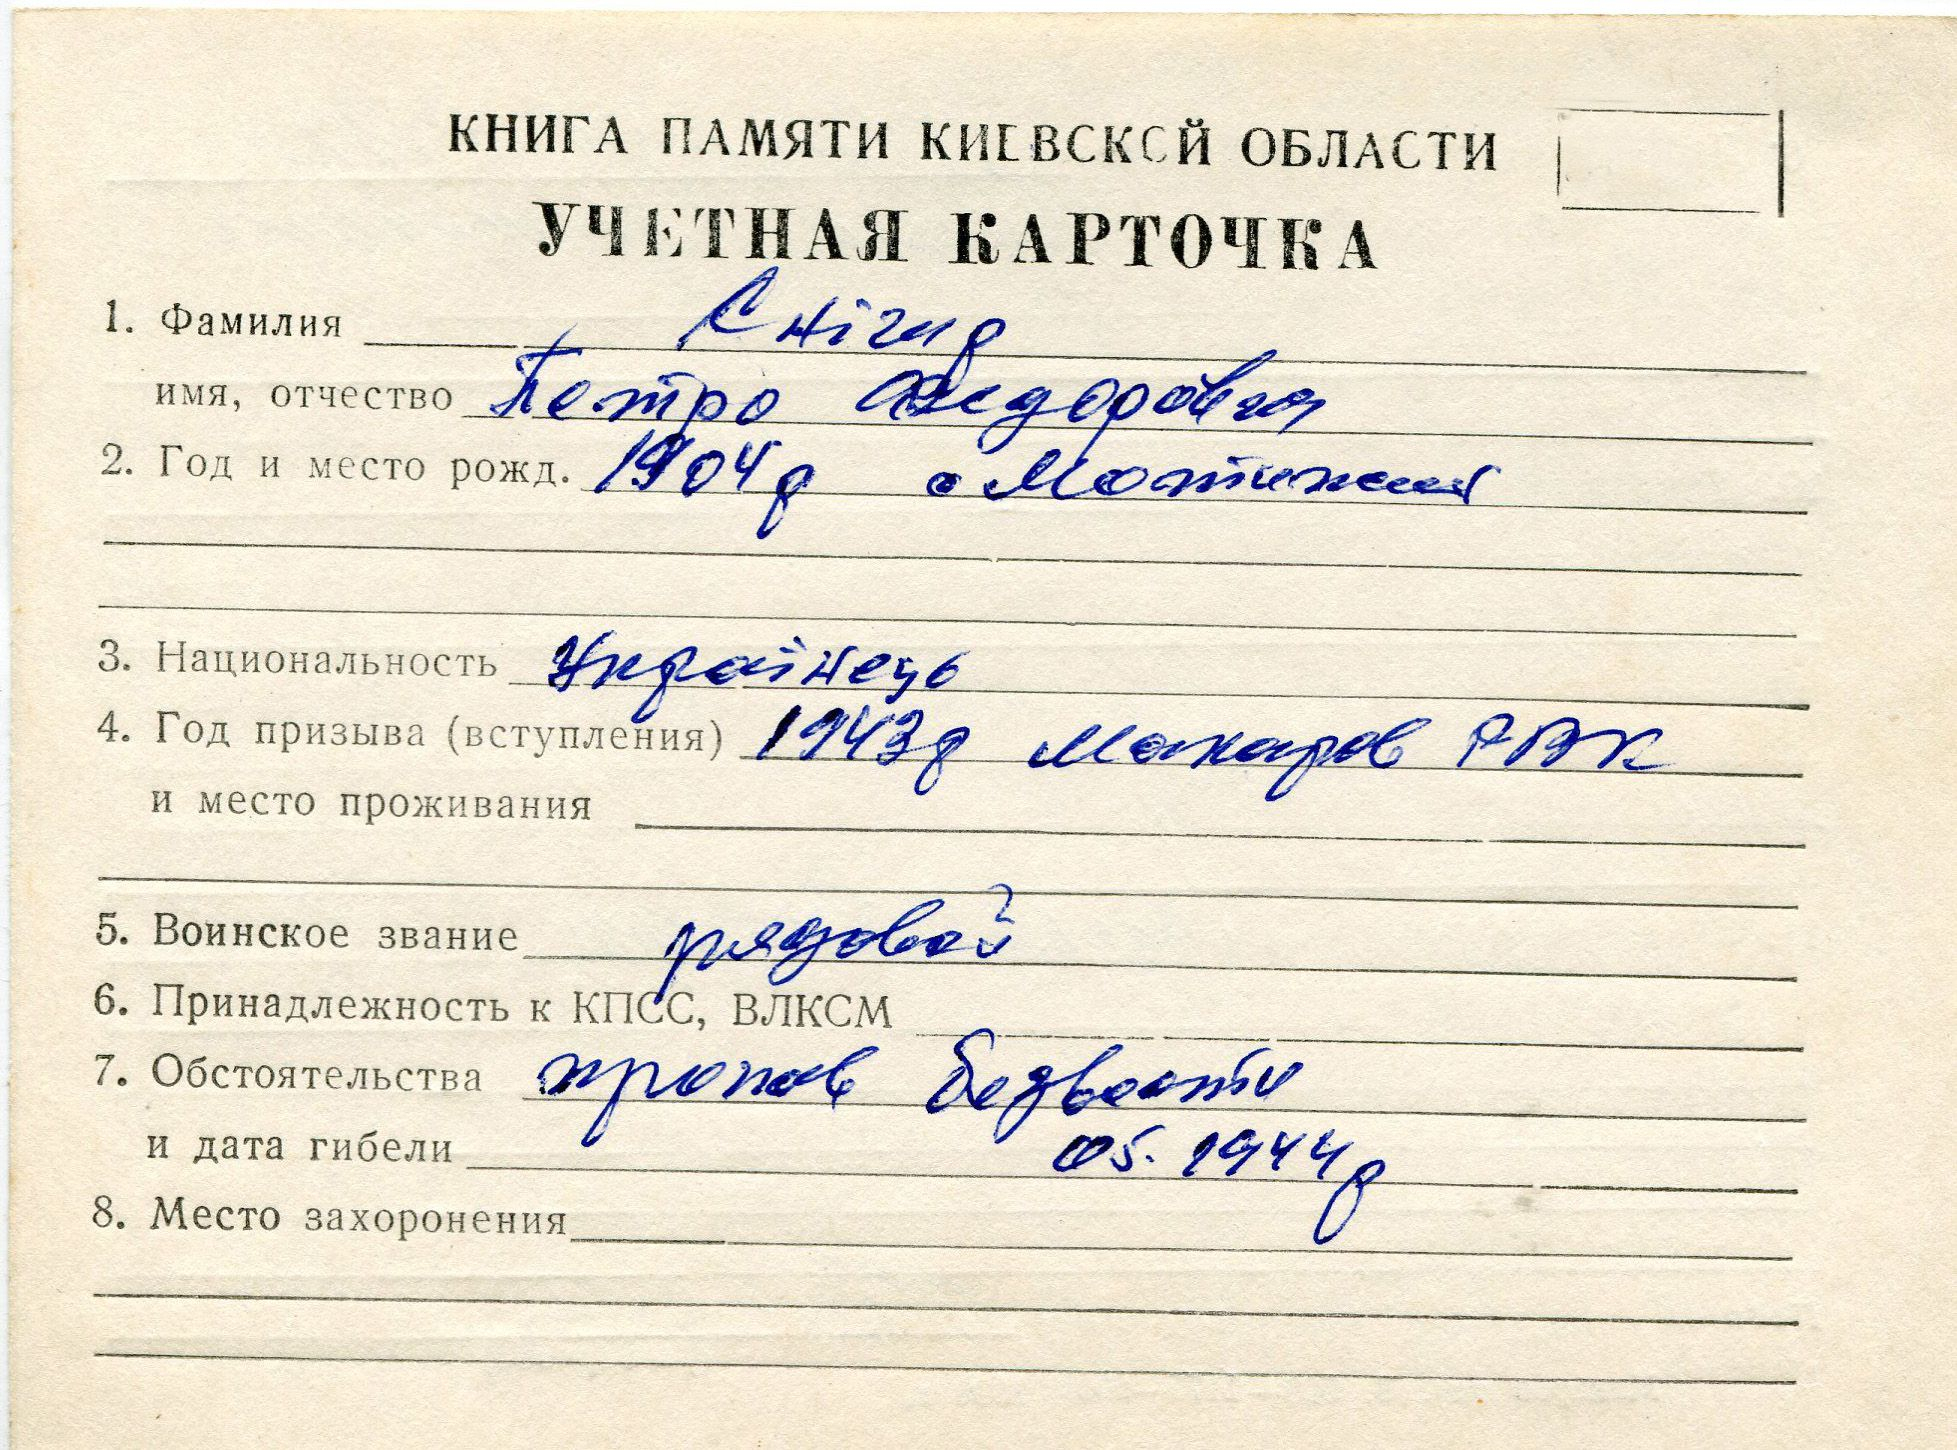 КНИГА ПАМЯТИ КИЕВСКОЙ ОБЛАСТИ
УЧЕТНАЯ КАРТОЧКА
1. Фамилия Снігир
имя, отчество Петро Федорович
2. Год и место рожд. 1904р с Мотижин
3. Национальность Українець
4. Год призыва (вступления) 1943р Макаров РВК
и место проживания
5. Воинское звание рядовой
6. Принадлежность к КПСС, ВЛКСМ
7. Обстоятельства пропав безвести
и дата гибели 05. 1944р
8. Место захоронения